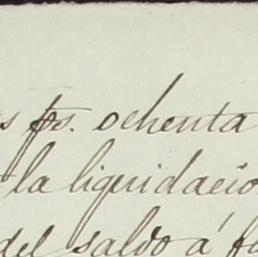 s ps. ochenta
la liquidacio
del saldo á fa